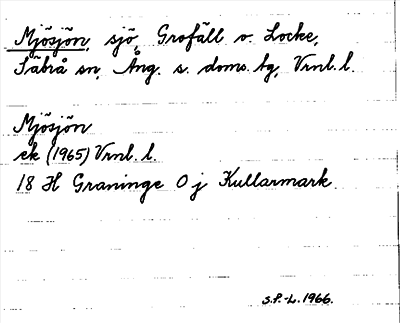 Mjösjön, sjö, Grofäll o. Locke,
Säbrå sn, Ång. s. doms. bg, Vrnl. l.
Mjösjön
ek (1965) Vrnl. l.
18 H Graninge O j Kullarmark
S.P.-L. 1966.